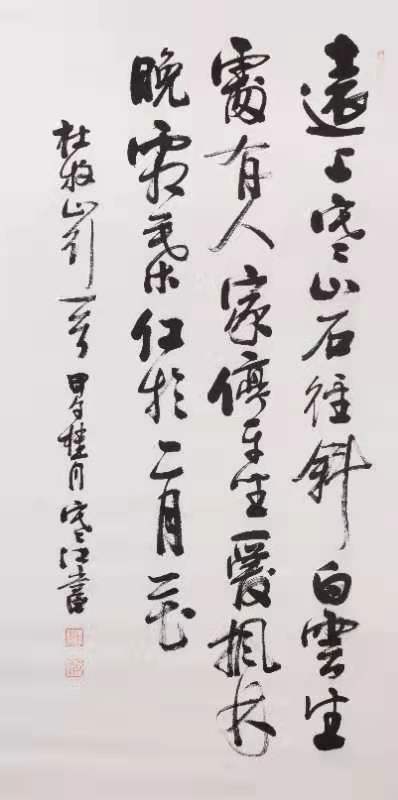 遠上寒山石徑斜白雲生
處有人家停車坐愛楓林
晚霜葉紅於二月花
杜牧山行一首 甲午桂月寒江書